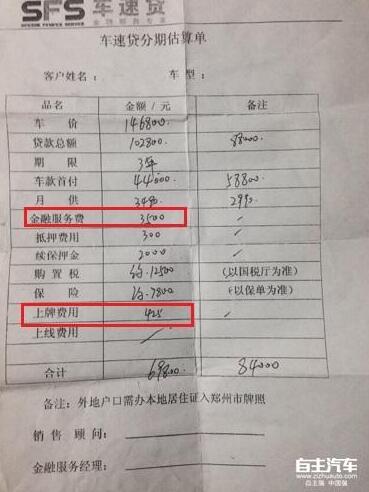 SFS 车速贷
金融服务专家
车速贷分期估算单
客户姓名： 车型：
品名 金额/元 备注
车价 146800.
贷款总额 102800. 88000
期限 3年
车款首付 44000. 58800
月供 3490. 2990.
金融服务费 3500
抵押费用 300
续保押金 2000
购置税 约.12500 (以国税厅为准)
保险 约.7800 (以保单为准)
上牌费用 425
上线费用
合计 69800. 84000
备注：外地户口需办本地居住证入郑州市牌照
销售顾问：
金融服务经理：
自主汽车
自主观 中国强